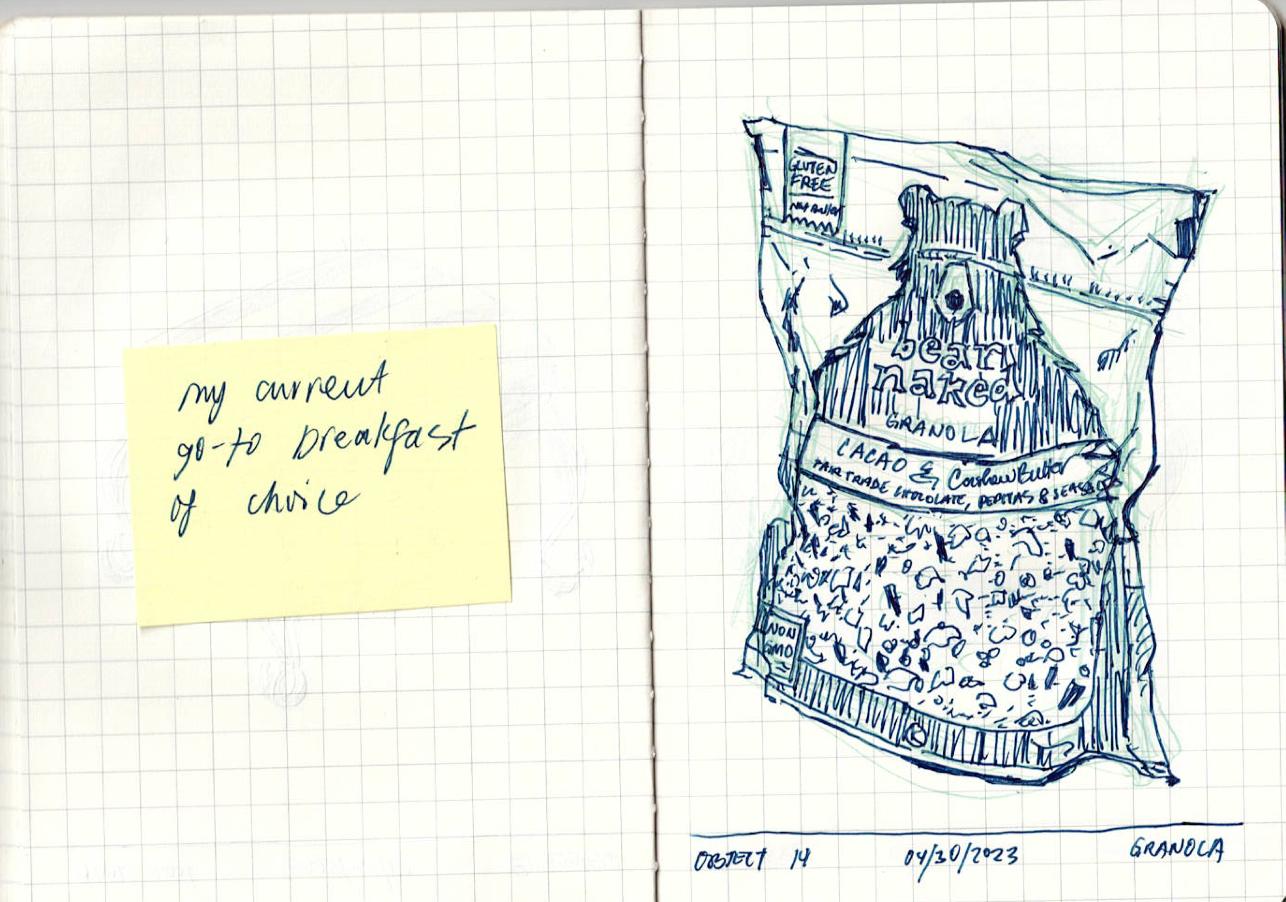 my current
go-to breakfast
of choice
GLUTEN
FREE
bear
naked
GRANOLA
CACAO & Cashew Butter
FAIR TRADE CHOCOLATE, PEPITAS &
NON
GMO
K
OBJECT 14 04/30/2023 GRANOLA